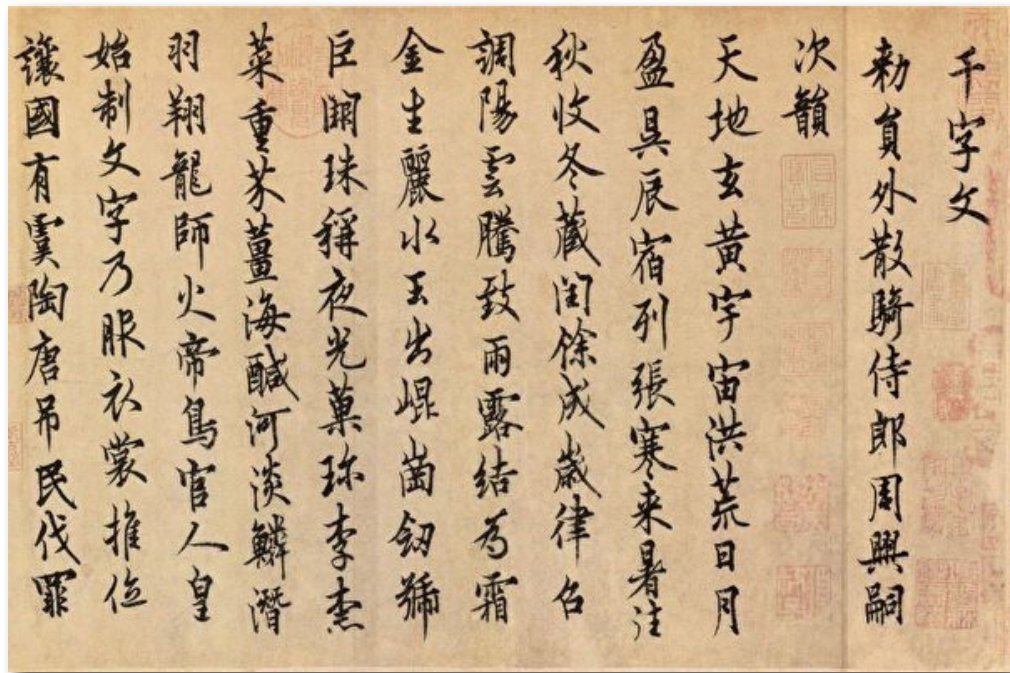 千字文
勅員外散騎侍郎周興嗣
次韻
天地玄黃宇宙洪荒日月
盈昃辰宿列張寒来暑往
秋收冬蔵閏餘成歳律召
調陽雲騰致雨露結為霜
金生麗水玉出崐崗劔號
巨闕珠稱夜光菓珎李柰
菜重芥薑海鹹河淡鱗潛
羽翔龍師火帝鳥官人皇
始制文字乃服衣裳推位
讓國有虞陶唐吊民伐罪